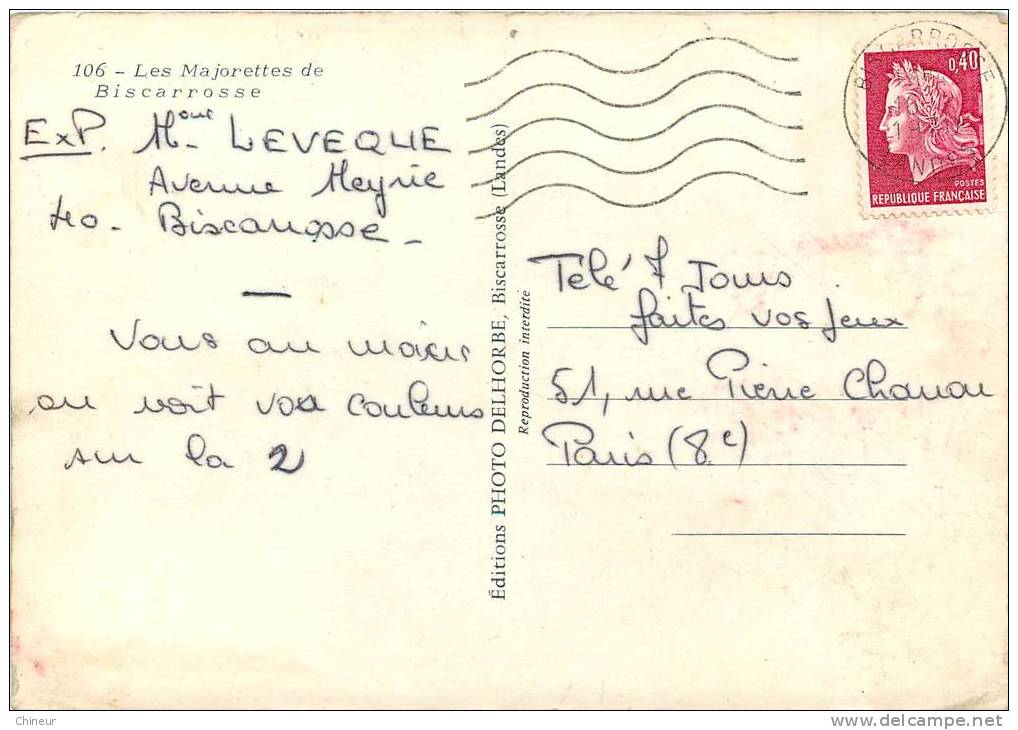 106 - Les Majorettes de
Biscarrosse
ExP. Mme LEVEQUE
Avenue Meyrie
40 - Biscarosse -
Vous au maxi
on voit vos couleurs
sur la 2
Éditions PHOTO DELHORBE, Biscarrosse (Landes)
Reproduction interdite
BISCARROSSE
LANDES
0,40
POSTES
REPUBLIQUE FRANÇAISE
Télé 7 Jours
faites vos jeux
51, rue Pierre Charron
Paris (8e)
Chineur
delcampe.net